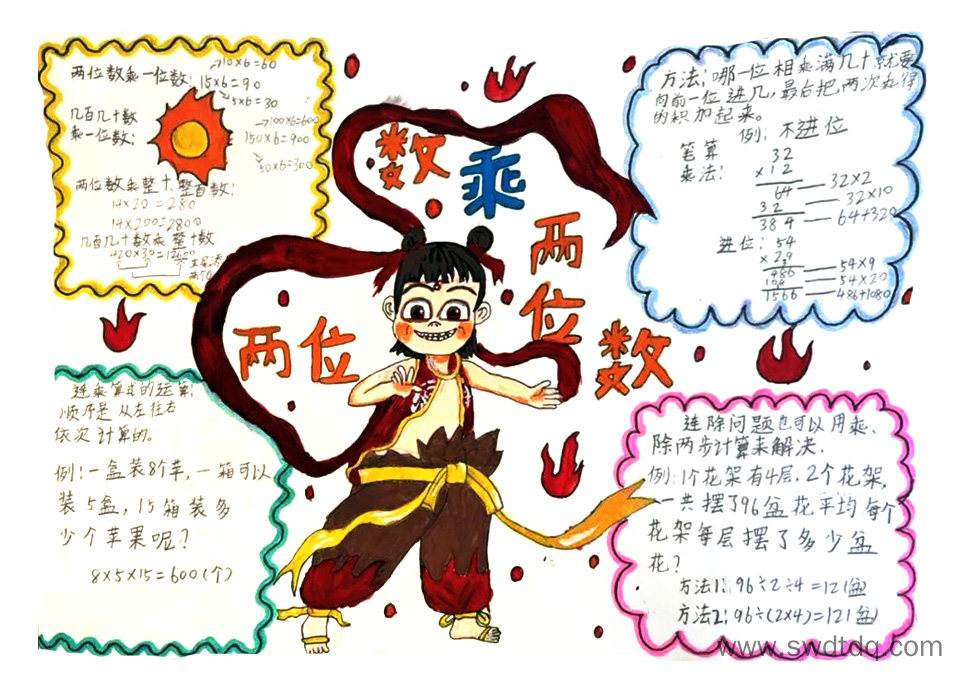 两位数乘一位数:
→10×6=60
15×6=90
↘5×6=30
几百几十数
乘一位数:
→100×6=600
150×6=900
↘50×6=300
两位数乘整十、整百数:
14×20=280
14×200=2800
几百几十数乘整十数
420×30=12600
数乘
两位
两位数
方法:哪一位相乘满几十就要
向前一位进几,最后把两次乘得
的积加起来。
例:不进位
笔算
乘法:
32
×12
64 — 32×2
32 — 32×10
384 — 64+320
进位:54
×29
486 — 54×9
108 — 54×20
1566 — 486+1080
连乘算式的运算
顺序是从左往右
依次计算的。
例:一盒装8个苹,一箱可以
装5盒,15箱装多
少个苹果呢?
8×5×15=600(个)
连除问题也可以用乘、
除两步计算来解决.
例:1个花架有4层.2个花架,
一共摆了96盆花平均每个
花架每层摆了多少盆
花?
方法1:96÷2÷4=12(盆)
方法2:96÷(2×4)=12(盆)
www.swdtdq.com